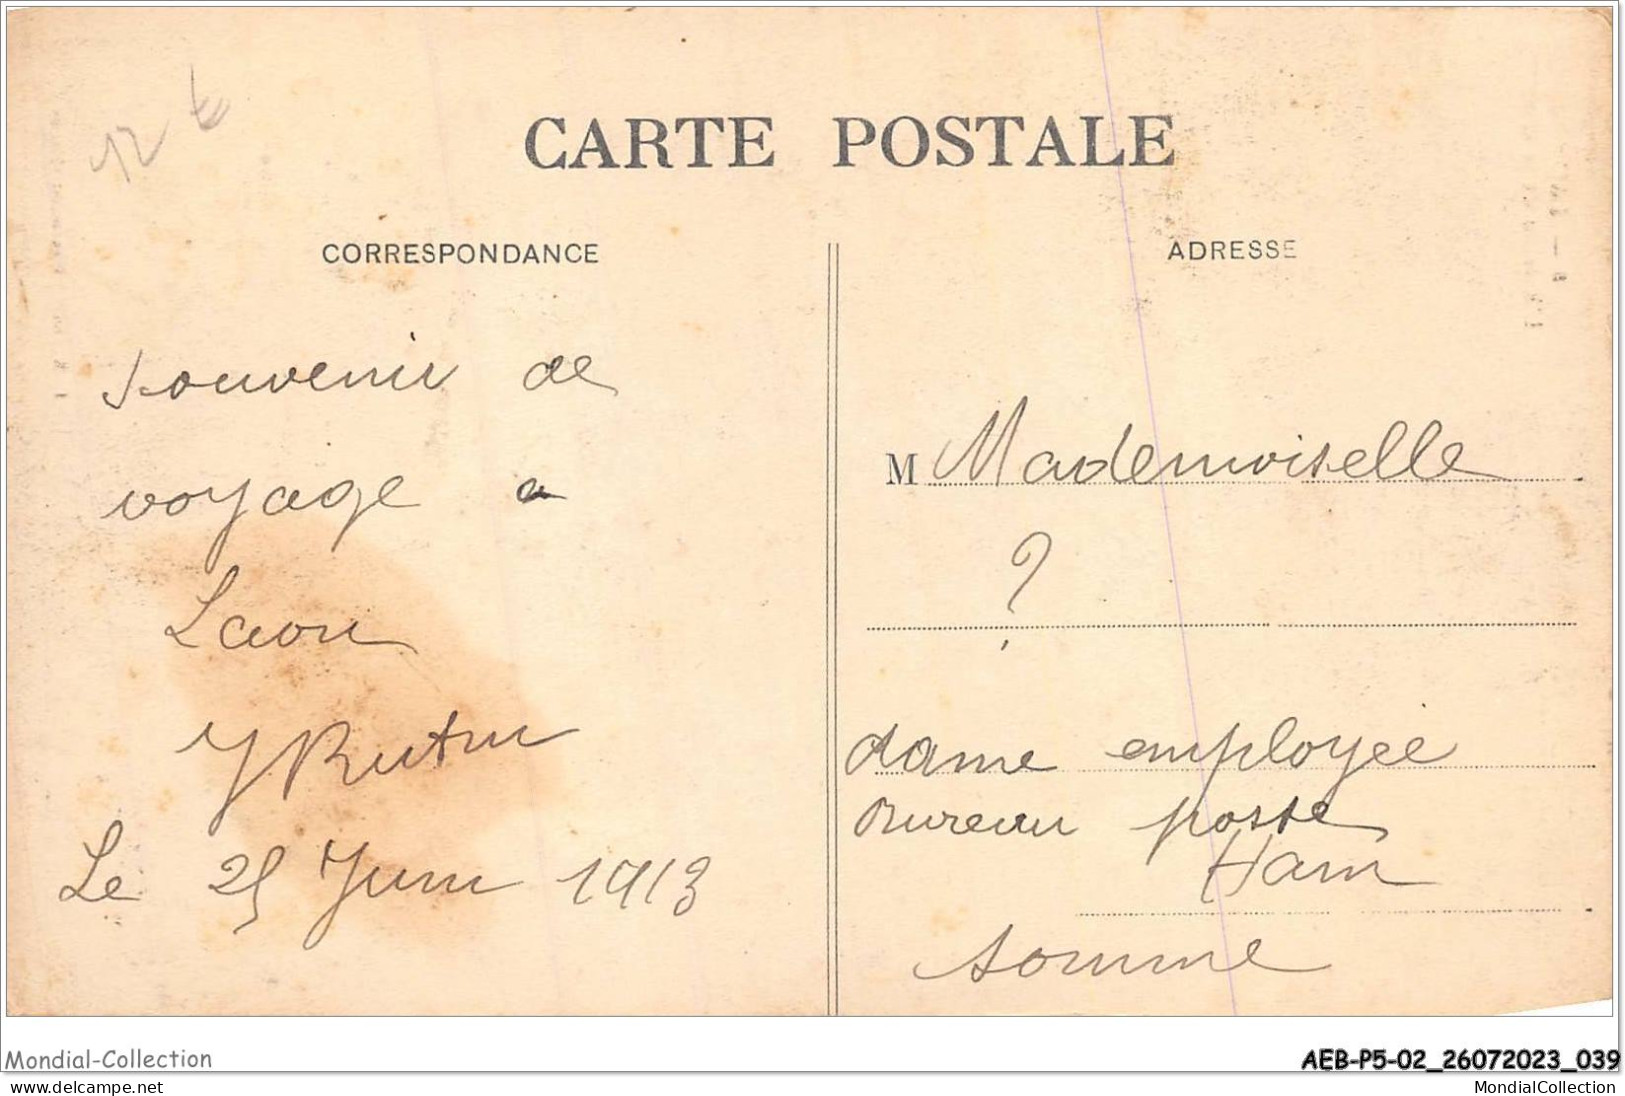 12 €
CARTE POSTALE
CORRESPONDANCE
ADRESSE
Souvenir de
voyage a
Laon
Le 25 Juin 1913
M Mademoiselle
?
dame employée
Bureau poste
Ham
Somme
Mondial-Collection
AEB-P5-02_26072023_039
www.delcampe.net
MondialCollection